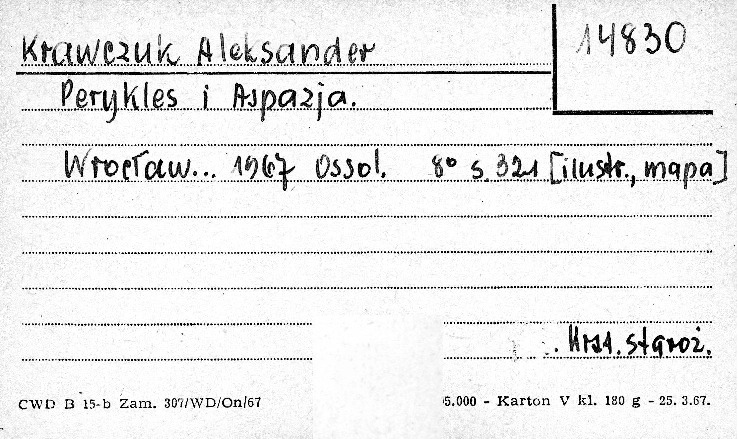 Krawczuk Aleksander
14830
Perykles i Aspazja.
Wrocław... 1967 Ossol. 8° s. 321 [ilustr., mapa]
Hist. staroż.
CWD B 15-b Zam. 307/WD/On/67 5.000 - Karton V kl. 180 g - 25. 3.67.